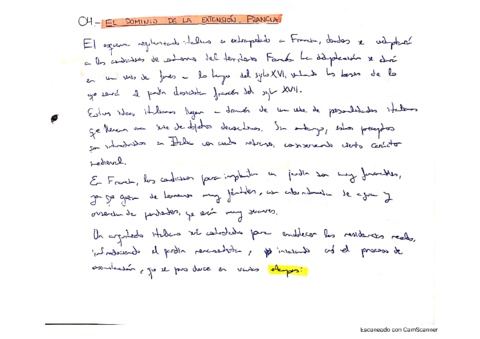 04 - EL DOMINIO DE LA EXTENSIÓN. FRANCIA
El esquema italiano es extrapolado a Francia, donde se adaptará
a las condiciones de entorno del territorio Francés. La adaptación se dará
en una serie de fases a lo largo del siglo XVI, las bases de lo
que será el jardín francés del siglo XVII.
Estas ideas italianas llegan a través de una serie de personalidades italianas
que llevan una serie de objetos decorativos. Sin embargo, estos preceptos
son introducidos en con cierto retraso, conservando cierto carácter
medieval.
En Francia, las condiciones para implantar un jardín son muy favorables,
ya que goza de terrenos muy fértiles, con abundancia de agua y
ausencia de pendientes, que son muy suaves.
Un arquitecto italiano es contratado para embellecer las residencias reales,
introduciendo el jardín renacentista, iniciando así el proceso de
asimilación, que se produce en varias etapas:
Escaneado con CamScanner